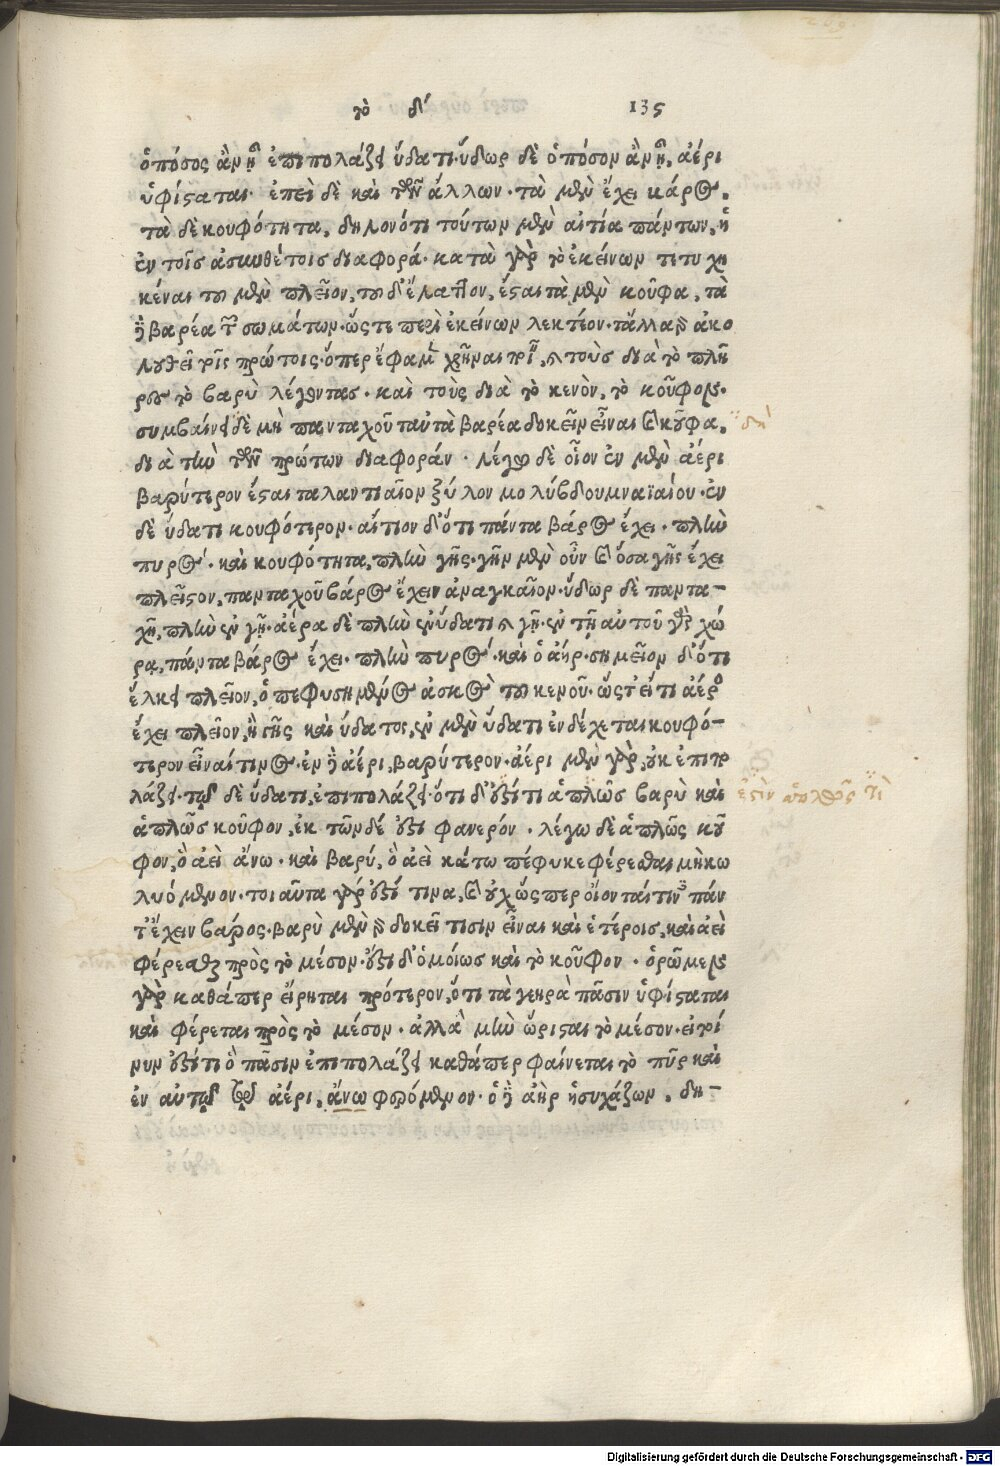 τὸ δ'. 135
ὁπόσος ἂν ᾖ ἐπιπολάζει ὕδατι· ὕδωρ δὲ ὁπόσον ἂν ᾖ, ἀέρι
ὑφίσταται· ἐπεὶ δὲ καὶ τῶν ἄλλων· τὰ μὲν ἔχει βάρος,
τὰ δὲ κουφότητα, δηλονότι τούτων μὲν αἰτία πάντων, ἡ
ἐν τοῖς ἀσυνθέτοις διαφορά· κατὰ γὰρ τὸ ἐκείνων τετυχη
κέναι του μὲν πλεῖον, του δ' ἔλαττον, ἔσται τὰ μὲν κοῦφα, τὰ
δὲ βαρέα τῶν σωμάτων· ὥστε περὶ ἐκείνων λεκτέον· τἄλλα δ' ἀκο
λουθεῖ τοῖς πρώτοις· ὅπερ ἔφαμεν χρῆναι ποιεῖν, καὶ τοὺς διὰ τὸ πλῆ
ρες τὸ βαρὺ λέγοντας· καὶ τοὺς διὰ τὸ κενὸν, τὸ κοῦφον·
συμβαίνει δὲ μὴ πανταχοῦ ταὐτὰ βαρέα δοκεῖν εἶναι καὶ κοῦφα, δὴ
διὰ τὴν τῶν πρώτων διαφοράν· λέγω δὲ οἷον ἐν μὲν ἀέρι
βαρύτερον ἔσται ταλαντιαῖον ξύλον μολύβδου μναϊαίου· ἐν
δὲ ὕδατι κουφότερον· αἴτιον δ' ὅτι πάντα βάρος ἔχει· πλὴν
πυρός· καὶ κουφότητα, πλὴν γῆς· γῆν μὲν οὖν καὶ ὅσα γῆς ἔχει
πλεῖστον, πανταχοῦ βάρος ἔχειν ἀναγκαῖον· ὕδωρ δὲ παντα-
χῇ, πλὴν ἐν γῇ· ἀέρα δὲ πλὴν ἐν ὕδατι καὶ γῇ· ἐν τῇ αὐτοῦ γὰρ χώ
ρᾳ, πάντα βάρος ἔχει· πλὴν πυρός· καὶ ὁ ἀήρ· σημεῖον δ' ὅτι
ἕλκει πλεῖον, ὁ πεφυσημένος ἀσκὸς του κενοῦ· ὥστ' εἴ τι ἀέρος
ἔχει πλεῖον, ἢ γῆς καὶ ὕδατος, ἐν μὲν ὕδατι ἐνδέχεται κουφό-
τερον εἶναί τινος· ἐν δὲ ἀέρι, βαρύτερον· ἀέρι μὲν γὰρ, οὐκ ἐπιπο
λάζει· τῷ δὲ ὕδατι, ἐπιπολάζει· ὅτι δ' ἐστί τι ἁπλῶς βαρὺ καὶ ἐστὶν ἁπλῶς τὶ
ἁπλῶς κοῦφον, ἐκ τῶνδέ ἐστι φανερόν· λέγω δὲ ἁπλῶς κοῦ
φον, ὃ ἀεὶ ἄνω· καὶ βαρύ, ὃ ἀεὶ κάτω πέφυκε φέρεσθαι μὴ κω
λυόμενον· τοιαῦτα γάρ ἐστί τινα, καὶ οὐχ ὥσπερ οἴονταί τινες πάν
τ' ἔχειν βάρος· βαρὺ μὲν δ' δοκεῖ τισιν εἶναι καὶ ἑτέροις, καὶ ἀεὶ
φέρεσθαι πρὸς τὸ μέσον· ἔστι δ' ὁμοίως καὶ τὸ κοῦφον· ὁρῶμεν
γὰρ καθάπερ εἴρηται πρότερον, ὅτι τὰ γεηρὰ πᾶσιν ὑφίσταται
καὶ φέρεται πρὸς τὸ μέσον· ἀλλὰ μὴν ὥρισται τὸ μέσον· εἰ τοί
νυν ἐστί τι ὃ πᾶσιν ἐπιπολάζει καθάπερ φαίνεται τὸ πῦρ καὶ
ἐν αὐτῷ τῷ ἀέρι, ἄνω φερόμενον· ὁ δὲ ἀὴρ ἡσυχάζων, δη-
Digitalisierung gefördert durch die Deutsche Forschungsgemeinschaft · DFG